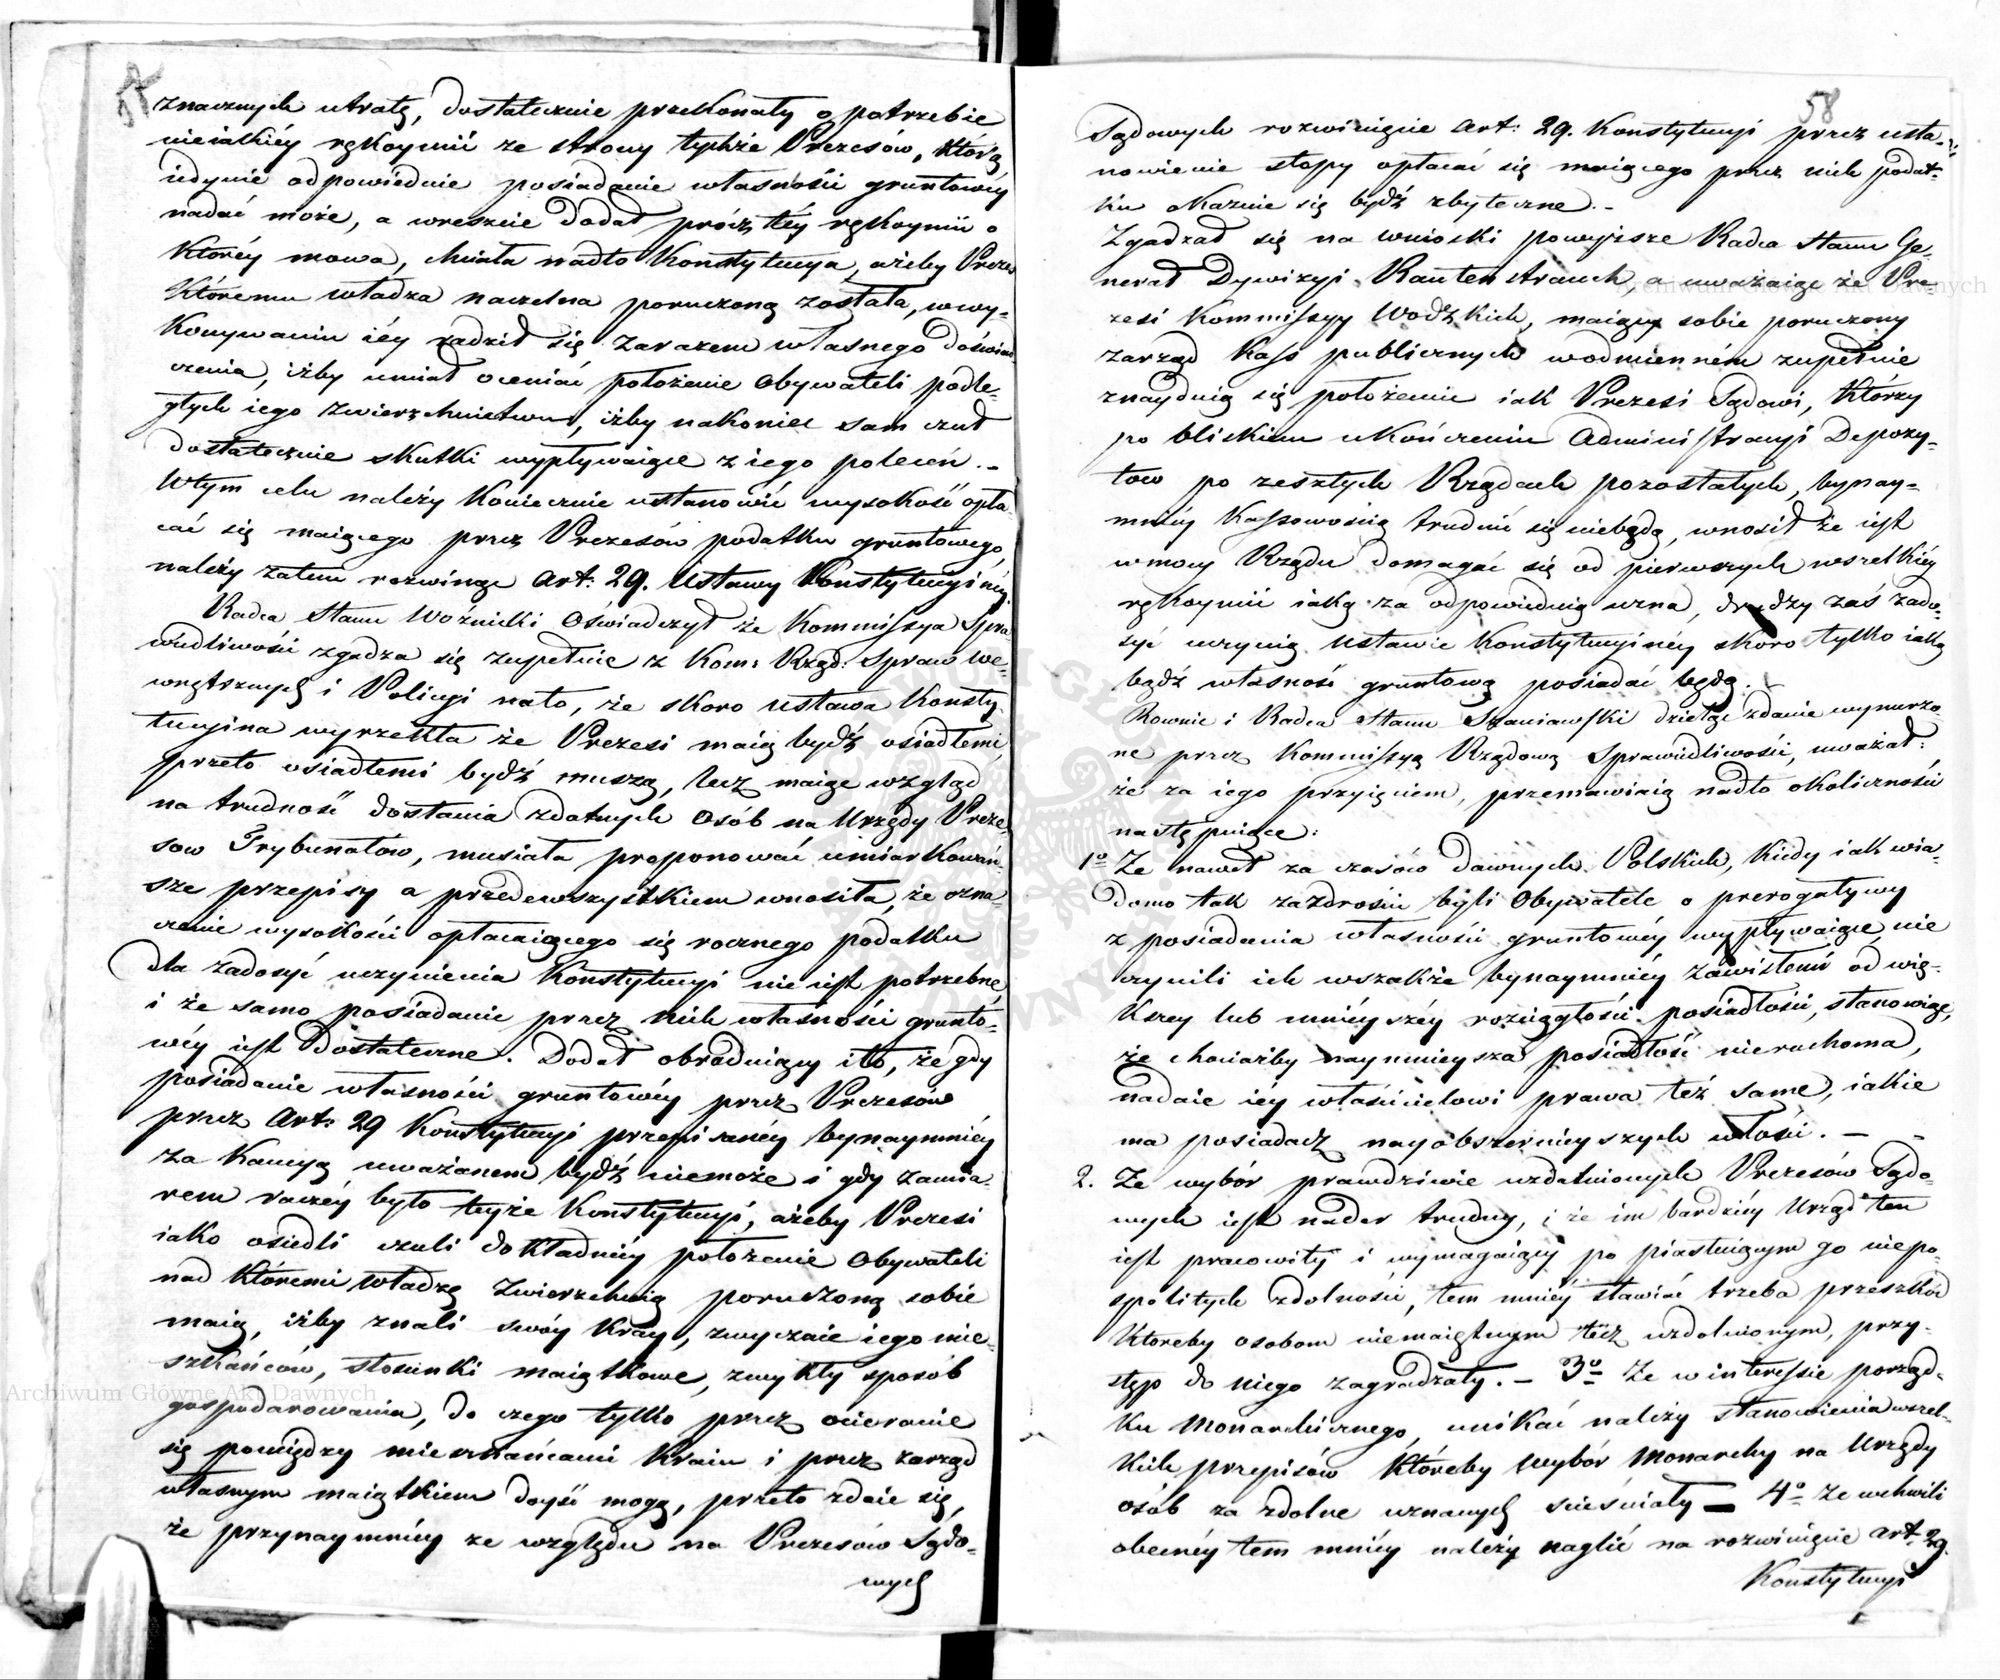 znacznych utratą, dostatecznie przekonały o potrzebie
nieiakiéy rękoymii ze strony tychże Prezesów, którą
iedynie odpowiednie posiadanie własności gruntowéy
nadać może, a wreszcie dodał prócz téy rękoymii o
któréy mowa, chciała nadto Konstytucya, ażeby Prezes
któremu władza naczelna poruczoną została, w wy-
konywaniu iéy radził się zarazem własnego doświad
czenia, iżby umiał oceniać położenie Obywateli podle-
głych iego zwierzchnictwu, iżby nakoniec sam czuł
dostatecznie skutki wypływaiące z iego poleceń.-
W tym celu należy koniecznie ustanowić wysokość opła-
cać się maiącego przez Prezesów podatku gruntowego,
należy zatem rozwinąć Art: 29. Ustawy Konstytucyinéy.
Radca Stanu Woźnicki Oświadczył że Kommissya Spra
wiedliwości zgadza się zupełnie z Kom: Rząd: Spraw We-
wnętrznych i Policyi na to, że skoro Ustawa Konsty
tucyina wyrzekła że Prezesi maią bydź osiadłemi,
przeto osiadłemi bydź muszą, lecz maiąc wzgląd
na trudność dostania zdatnych Osób na Urzędy Preze-
sow Trybunałow, musiała proponować umiarkowań-
sze przepisy a przedewszystkiem wnosiła, że ozna-
czenie wysokości opłacaiącego się rocznego podatku
dla zadosyć uczynienia Konstytucyi nie iest potrzebne
i że samo posiadanie przez nich własności grunto-
wéy iest dostateczne. Dodał obraduiący i to, że gdy
posiadanie własności gruntowéy przez Prezesów
przez Art: 29 Konstytucyi przepisanéy bynaymniéy
za Kaucyą uważanem bydź niemoże i gdy zamia-
rem raczéy było teyże Konstytucyi, ażeby Prezesi
iako osiedli czuli dokładniéy położenie Obywateli
nad któremi władzę zwierzchnią poruczoną sobie
maią, iżby znali swóy Kray, zwyczaie iego mie-
szkańców, stosunki maiątkowe, zwykły sposób
gospodarowania, do czego tylko przez ocieranie
się pomiędzy mieszkańcami Kraiu i przez zarząd
własnym maiątkiem doyść mogą, przeto zdaie się,
że przynaymniéy ze względu na Prezesów Sądo-
wych
58
Sądowych rozwinięcie Art: 29. Konstytucyi przez usta-
nowienie stopy opłacać się maiącego przez nich podat-
ku okazuie się bydź zbyteczne.-
Zgadzał się na wnioski powyższe Radca Stanu Ge-
nerał Dywizyi Rautenstrauch, a uważaiąc że Pre-
zesi Kommissyy Wodzkich, maiący sobie poruczony
zarząd Kass publicznych w odmienném zupełnie
znayduią się położeniu iak Prezesi Sądowi, którzy
po bliskiem ukończeniu Administracyi Depozy-
tow po zeszłych Rządach pozostałych, bynay-
mniéy Kassowością trudnić się niebędą, wnosił że iest
w mocy Rządu domagać się od pierwszych wszelkiéy
rękoymii iaką za odpowiednią uzna, drudzy zaś zado-
syć uczynią Ustawie Konstytucyinéy skoro tylko iaką
bądź własność gruntową posiadać będą.
Rownie i Radca Stanu Szaniawski dzieląc zdanie wynurzo-
ne przez Kommissyą Rządową Sprawiedliwości, uważał:
że za iego przyięciem, przemawiaią nadto okoliczności
następuiące:
1o Że nawet za czasów dawnych Polskich, kiedy iak wia-
domo tak zazdrośni byli Obywatele o prerogatywy
z posiadania własności gruntowéy wypływaiące, nie
czynili ich wszakże bynaymniéy zawisłemi od wię-
kszey lub mniéyszéy rozciągłości posiadłości, stanowiąc,
że chociażby naymnieysza posiadłość nieruchoma,
nadaie iéy właścicielowi prawa też same, iakie
ma posiadacz nayobszernieyszych włości. -
2. Że wybór prawdziwie uzdatnionych Prezesów Sądo-
wych iest nader trudny, i że im bardziéy Urząd ten
iest pracowity i wymagaiący po piastuiącym go niepo-
spolitych zdolności, tem mniéy stawiać trzeba przeszkód
któreby osobom niemaiętnym też uzdolnionym, przy-
stęp do niego zagradzały. - 3o Że w interessie porząd-
ku Monarchicznego, unikać należy stanowienia wszel-
kich przepisów któreby wybór Monarchy na Urzędy
osób za zdolne uznanych sieśniały - 4o Że w chwili
obecnéy tem mniéy należy naglić na rozwinięcie art. 29.
Konstytucyi
Archiwum Główne Akt Dawnych
Archiwum Główne Akt Dawnych